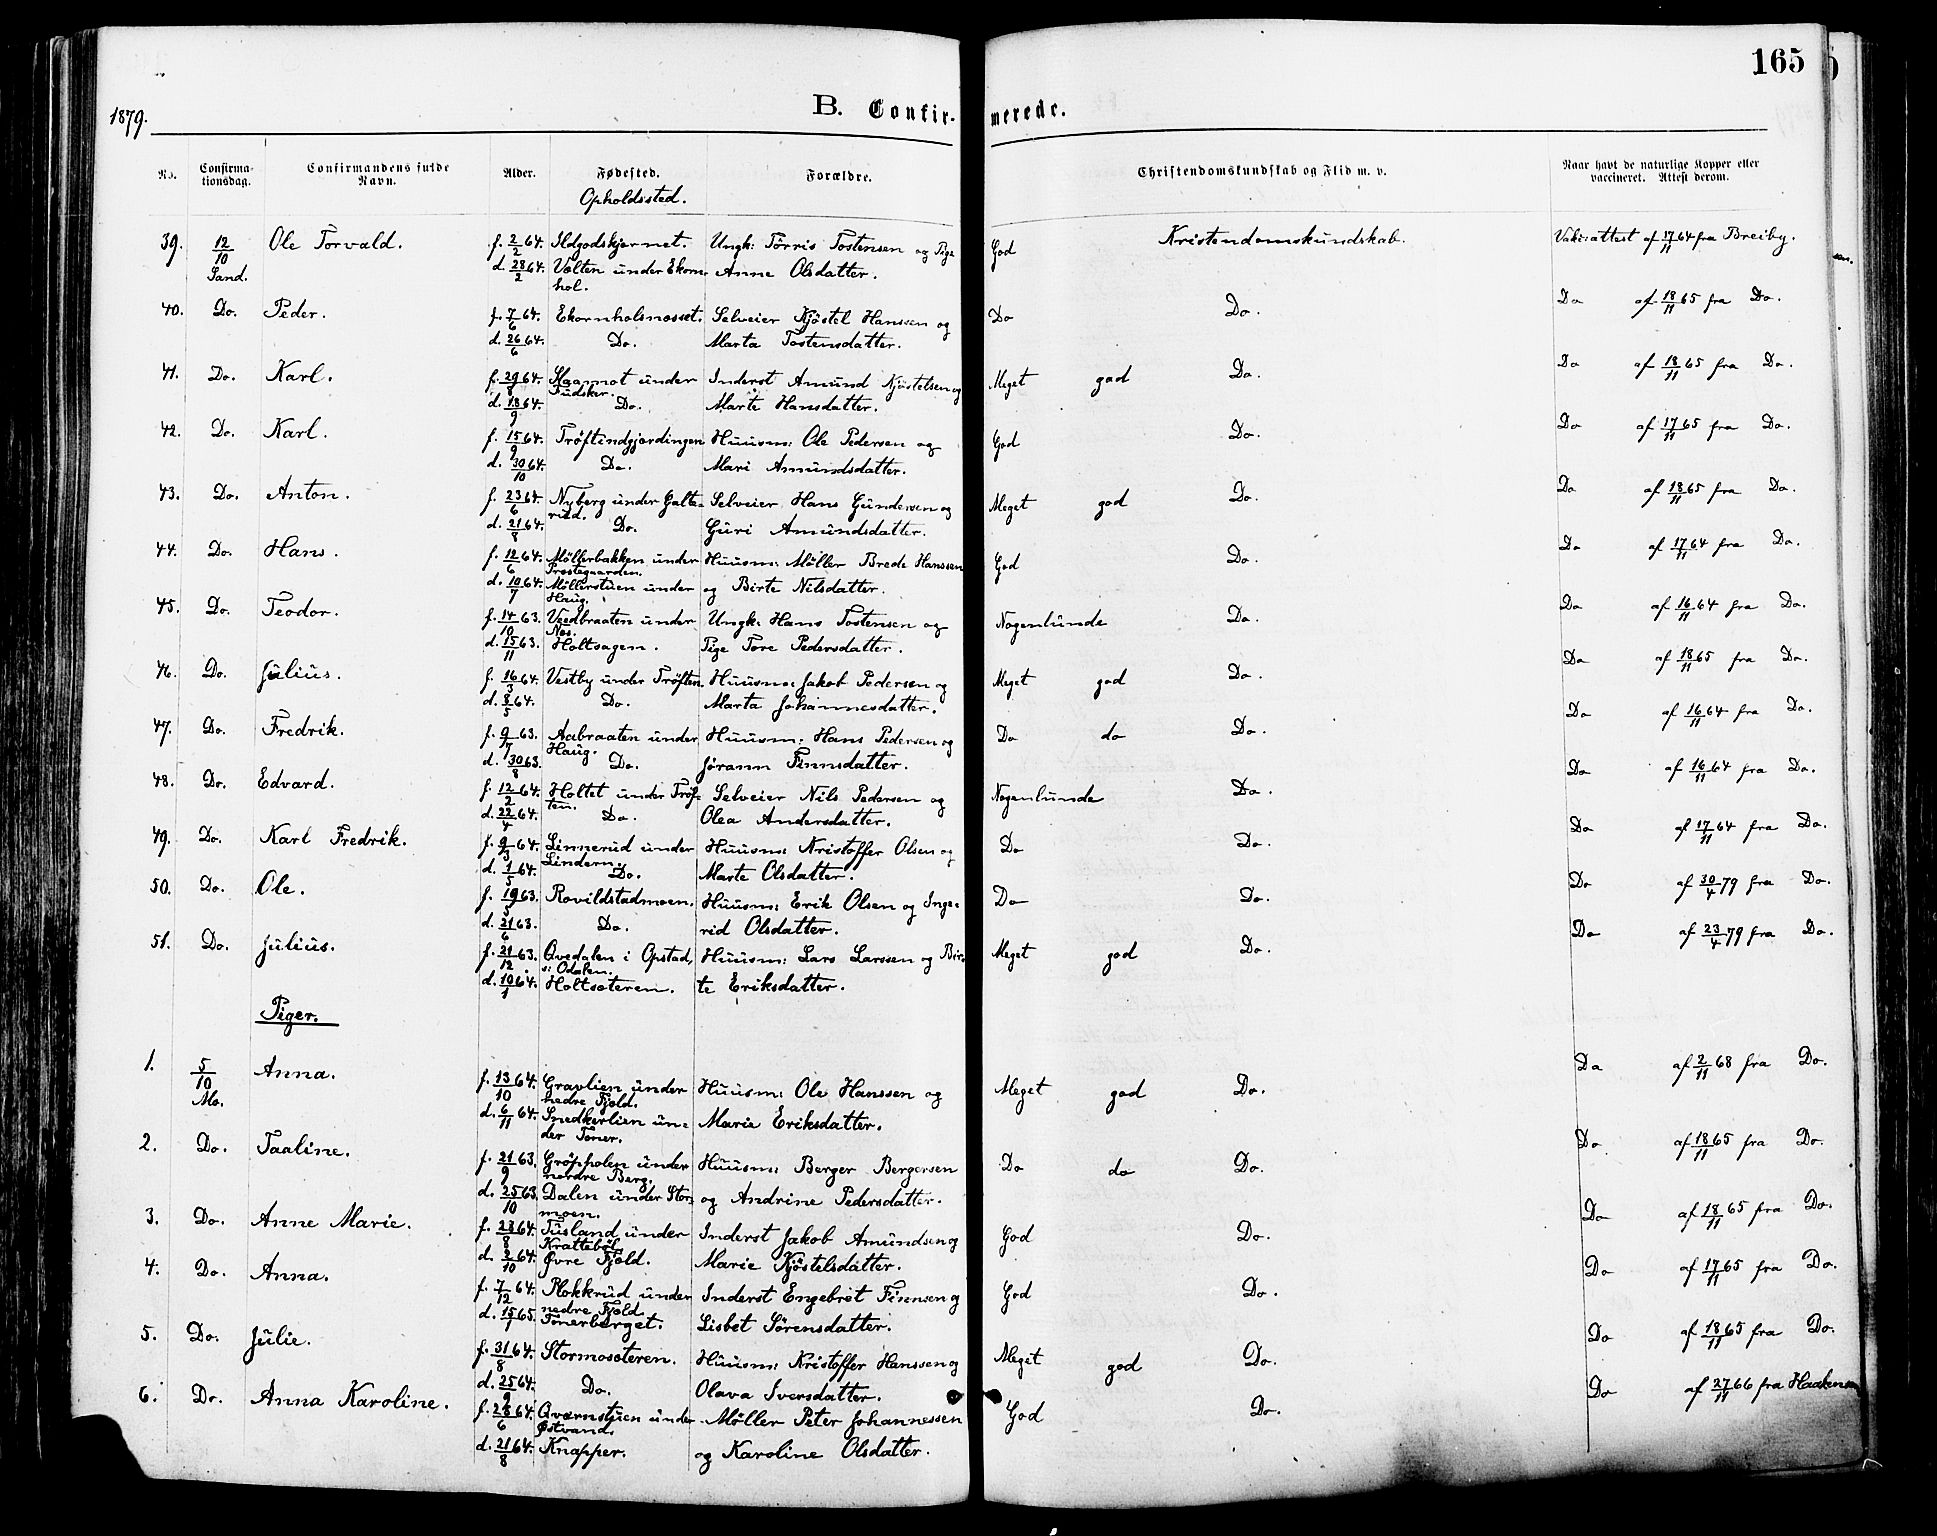 165
1879.
B. Confirmerede.
No. Confirmationsdag. Confirmandens fulde Navn. Alder. Fødested. Forældre. Christendomskundskab og Flid m. v. Naar havt de naturlige Kopper eller vaccineret. Attest derom.
Opholdssted.
39. 12/10 Ole Torvald. f. 2/2 64. Ungk: Torris Tostensen og Pige God Kristendomskundskab. af 17/11 64 fra Breiby.
Sand. d. 28/2 64. Volten under Ekorn- Anne Olsdatter.
hol.
40. Do. Peder. f. 7/6 64. Ekornholmosset. Selveier Kjøstel Hanssen og Do Do. Do af 18/11 65 fra Do.
d. 26/6 64. Do. Marta Tostensdatter.
41. Do. Karl. Haamot under Inderst Amund Kjøstelsen og Meget god Do. Do af 18/11 65 fra Do.
d. 18/9 64. Do. Marte Hansdatter.
42. Do. Karl. f. 15/9 64. Trøftindgjordingen Huusm: Ole Pedersen og God Do. Do af 17/11 65 fra Do.
d. 30/10 64. Do. Mari Amundsdatter.
43. Do. Anton. f. 23/6 64. Nyberg under Galte- Selveier Hans Gundersen og Meget god Do. Do af 18/11 65 fra Do.
rud.
d. 21/8 64. Do. Guri Amundsdatter.
44. Do. Hans. f. 12/6 64. Møllerbakken under Huusm: Møller Brede Hanssen God Do. Do af 17/11 64 fra Do.
Prestegaarden.
d. 10/7 64. Møllerstuen under og Birte Nilsdatter.
Haug.
45. Do. Teodor. f. 14/10 63. Veedbraaten under Ungk: Hans Tostensen og Nogenlunde Do. Do af 16/11 64 fra Do.
Nes.
d. 15/11 63. Holtsagen. Pige Tore Pedersdatter.
46. Do. Julius. f. 16/3 64. Vestby under Trøften Huusm: Jakob Pedersen og Meget god Do. Do af 18/11 65 fra Do.
d. 8/5 64. Do. Marta Johannesdatter.
47. Do. Fredrik. f. 9/7 63. Aabraaten under Huusm: Hans Pedersen og Do do Do. Do af 16/11 64 fra Do.
Haug.
d. 30/8 63. Do. Jørann Finnsdatter.
48. Do. Edvard. f. 12/2 64. Holtet under Trøf- Selveier Nils Pedersen og Nogenlunde Do. Do af 16/11 64 fra Do.
ten.
d. 22/4 64. Do. Olea Andersdatter.
49. Do. Karl Fredrik. f. 9/3 64. Linnerud under Huusm: Kristoffer Olsen og Do Do. Do af 17/11 64 fra Do.
Lindern.
d. 1/5 64. Do. Marte Olsdatter.
50. Do. Ole. Rovildstadmoen. Huusm: Erik Olsen og Inge- Do Do. Do af 30/4 79 fra Do.
d. 21/6 63. Do. rid Olsdatter.
51. Do. Julius. f. 21/12 63. Qvedalen i Opstad, Huusm: Lars Larssen og Bir- Meget god Do. Do af 23/4 79 fra Do.
s: Odalen.
d. 10/1 64. Holtsæteren. te Eriksdatter.
Piger.
1. 5/10 Anna. f. 13/10 64. Gravlien under Huusm: Ole Hanssen og Meget god Do. Do af 2/11 68 fra Do.
Mo. nedre Fjeld.
d. 6/11 64. Snedkerlien un- Marie Eriksdatter.
der Toner.
2. Do. Taaline. f. 21/9 63. Grøpholen under Huusm: Berger Bergersen Do do Do. Do af 18/11 65 fra Do.
nordre Berg.
d. 25/10 63. Dalen under Stor- og Andrine Pedersdatter.
moen.
3. Do. Anne Marie. f. 28/8 64. Tusland under Inderst Jakob Amundsen og God Do. Do af 18/11 65 fra Do.
Krattebøl.
d. 2/10 64. Øvre Fjeld. Marie Kjøstelsdatter.
4. Do. Anna. f. 7/12 64. Plokkrud under Inderst Engebret Finnsen og God Do. Do af 17/11 65 fra Do.
nedre Fjeld.
d. 15/1 65. Tonerberget. Lisbet Sørensdatter.
5. Do. Julie. f. 31/8 64. Stormosæteren. Huusm: Kristoffer Hanssen og Meget god Do. Do af 18/11 65 fra Do.
d. 25/9 64. Do. Olava Iversdatter.
6. Do. Anna Karoline. f. 28/6 64. Qværnstuen under Møller Peter Johannessen God Do. Do af 27/11 66 fra
Østvand.
d. 21/8 64. Knapper. og Karoline Olsdatter.